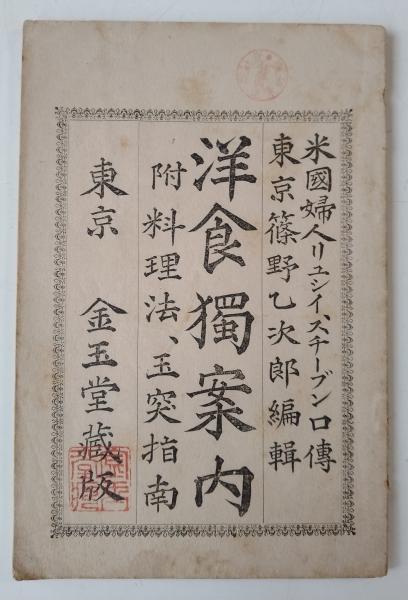 米國婦人リュシイ、スチーブン口傳
東京篠野乙次郎編輯
洋食獨案内
附料理法、玉突指南
東京 金玉堂藏版